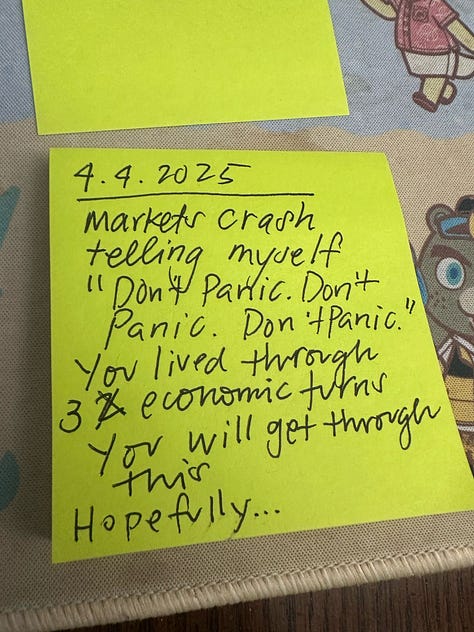 4.4.2025
Markets crash
telling myself
"Don't Panic. Don't
Panic. Don't Panic."
You lived through
3 economic turns
You will get through
this
Hopefully...